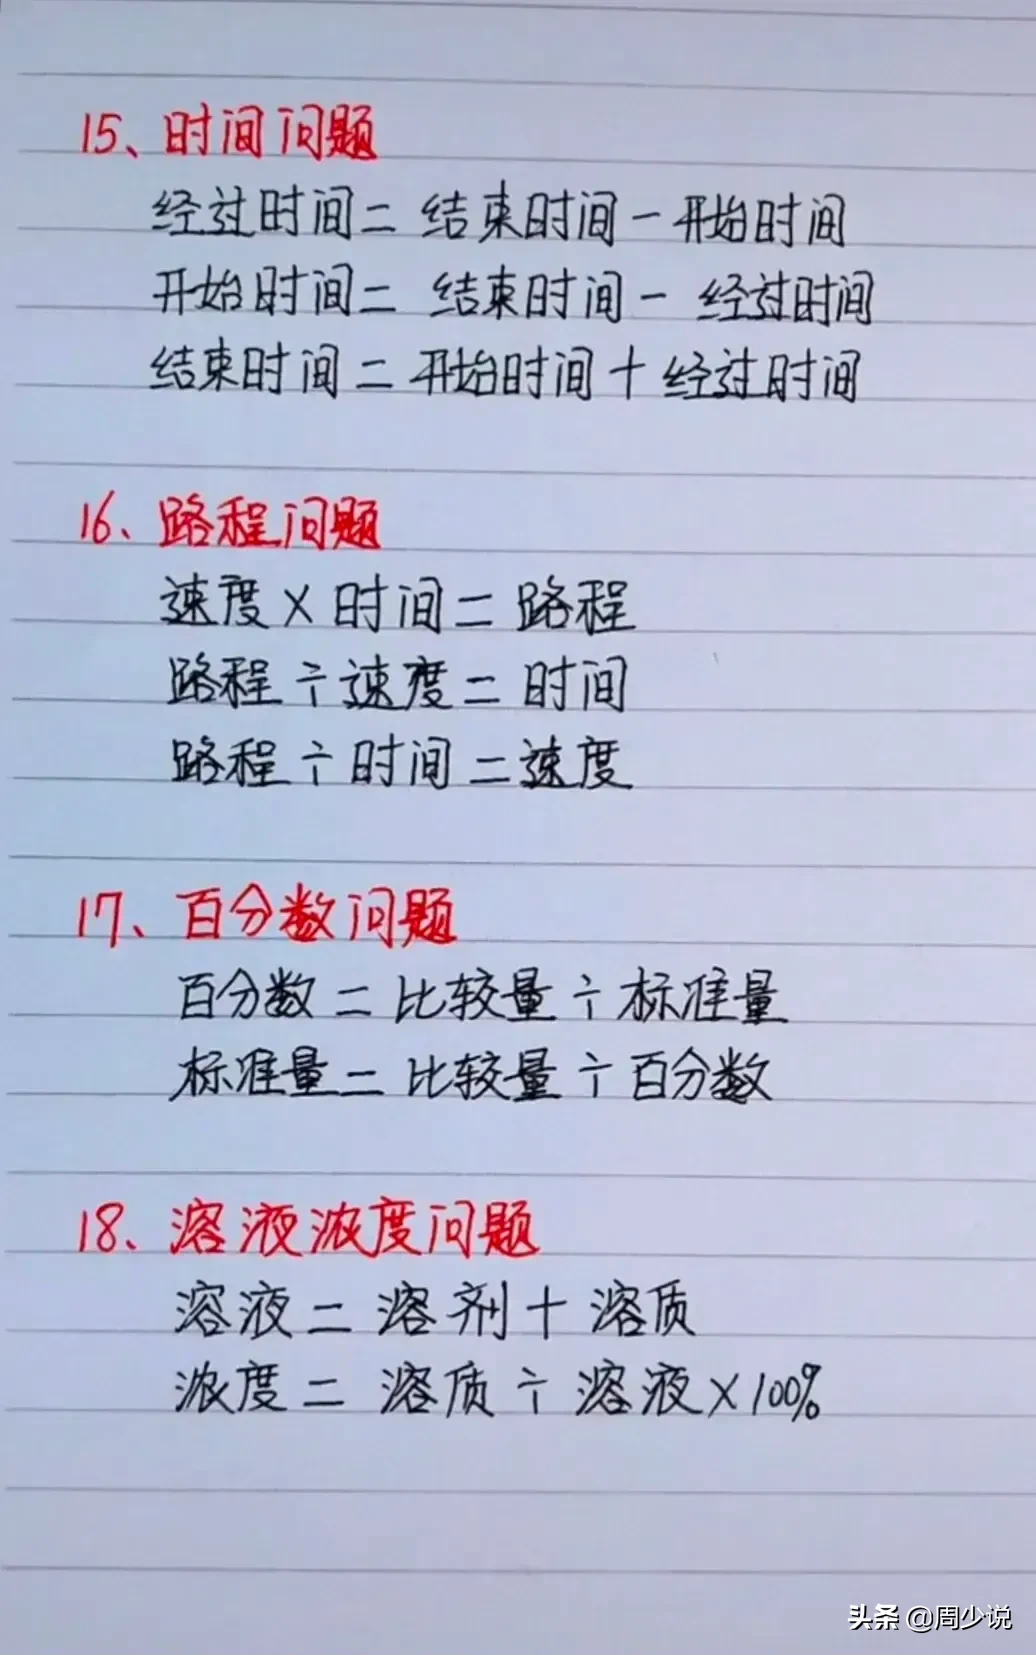 15、时间问题
经过时间=结束时间-开始时间
开始时间=结束时间-经过时间
结束时间=开始时间+经过时间
16、路程问题
速度×时间=路程
路程÷速度=时间
路程÷时间=速度
17、百分数问题
百分数=比较量÷标准量
标准量=比较量÷百分数
18、溶液浓度问题
溶液=溶剂+溶质
浓度=溶质÷溶液×100%
头条 @周少说